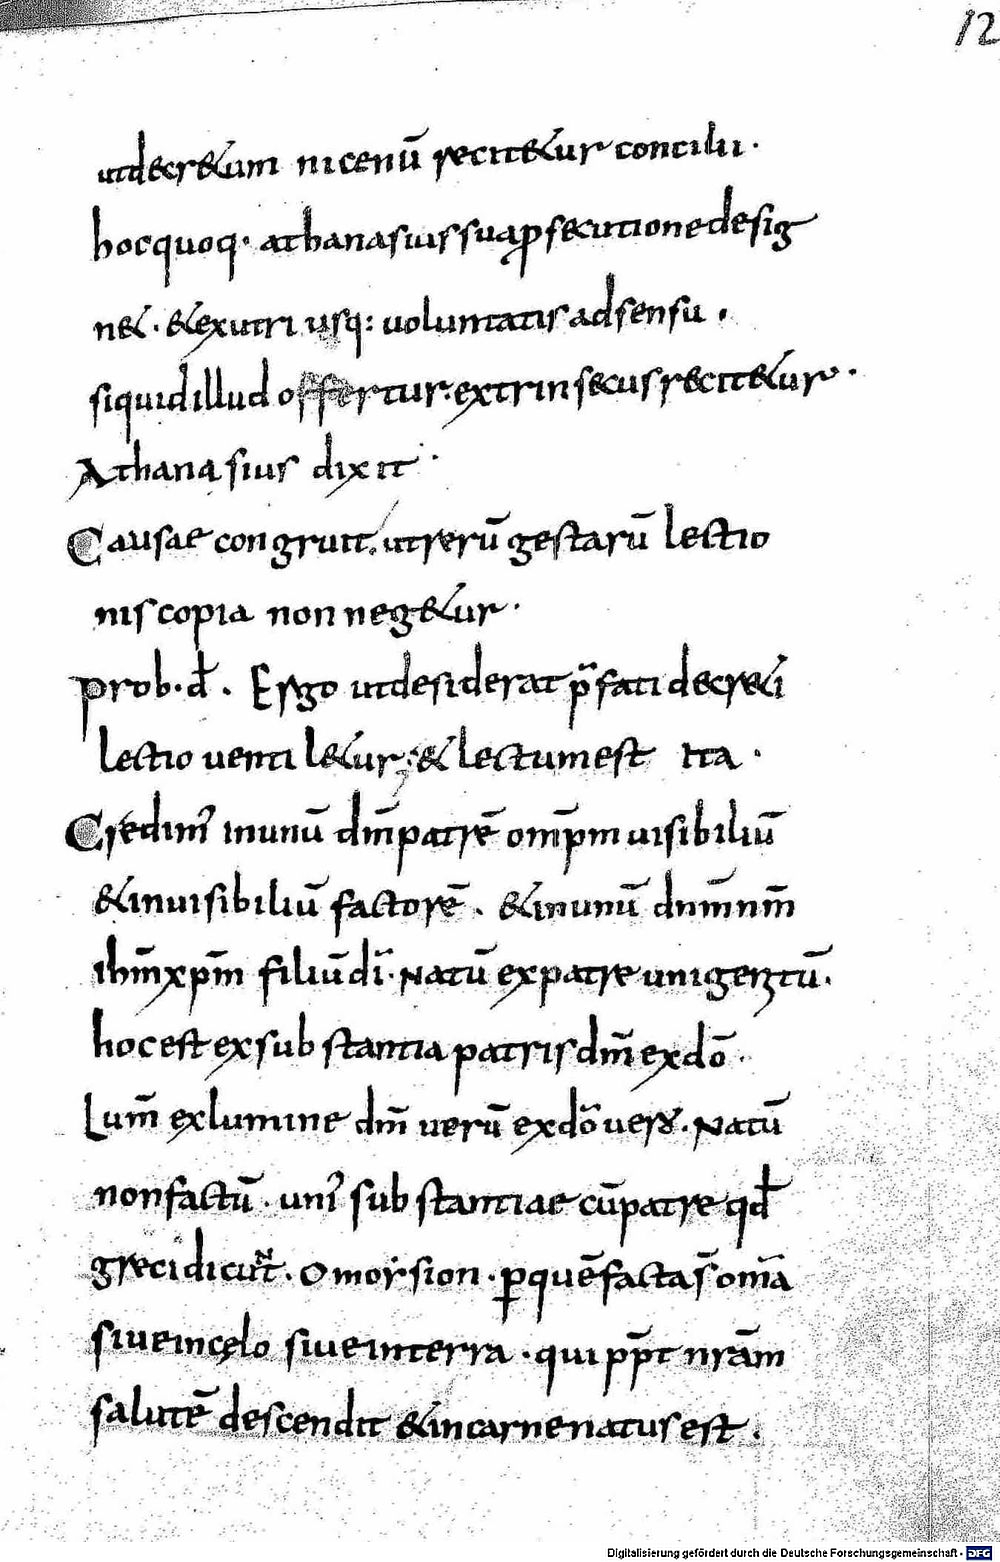 12
ut decr&um nicenū recit&ur concilii·
hoc quoq· athanasius sua ꝑsecutione desig
n&· & ex utri usq: uoluntatis adsensu.
siquid illud offertur· extrinsecus recit&ur·
Athanasius dixit·
Causae congruit. ut rerū gestarū lectio
nis copia non neg&ur·
Prob·đ. Ergo ut desiderat p̄fati decr&i
lectio uentil&ur; & lectum est Ita·
Credim' in unū dm̄ patrē om̄pm uisibiliū
& inuisibiliū factorē. & in unū dnm̄ nm̄
ihm̄ xpm̄ filiū dī· Natū ex patre unigenitū.
hoc est ex substantia patris dm̄ ex dō.
Lum̄ ex lumine dm̄ uerū ex dō uero. Natū
non factū· uni' substantiae cū patre qđ
greci dicūt. omoysion· ꝑ quē facta s̄ om̄a
siue in cęlo siue in terra· qui pp̄t nrām
salutē descendit & incarnenatus est.
Digitalisierung gefördert durch die Deutsche Forschungsgemeinschaft - DFG